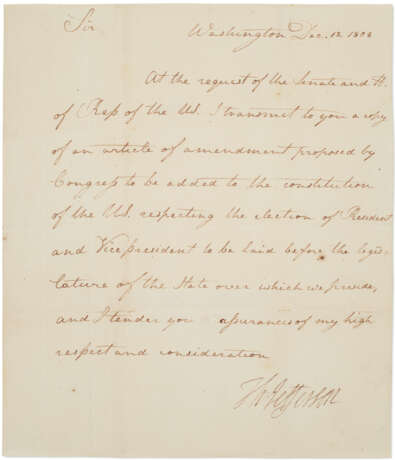 Sir
Washington Dec. 12. 1803
At the request of the Senate and H.
of Reps of the US. I transmit to you a copy
of an article of amendment proposed by
Congress to be added to the constitution
of the U.S. respecting the election of President
and Vice president to be laid before the legis
lature of the State over which we preside,
and I tender you assurances of my high
respect and consideration
Th: Jefferson